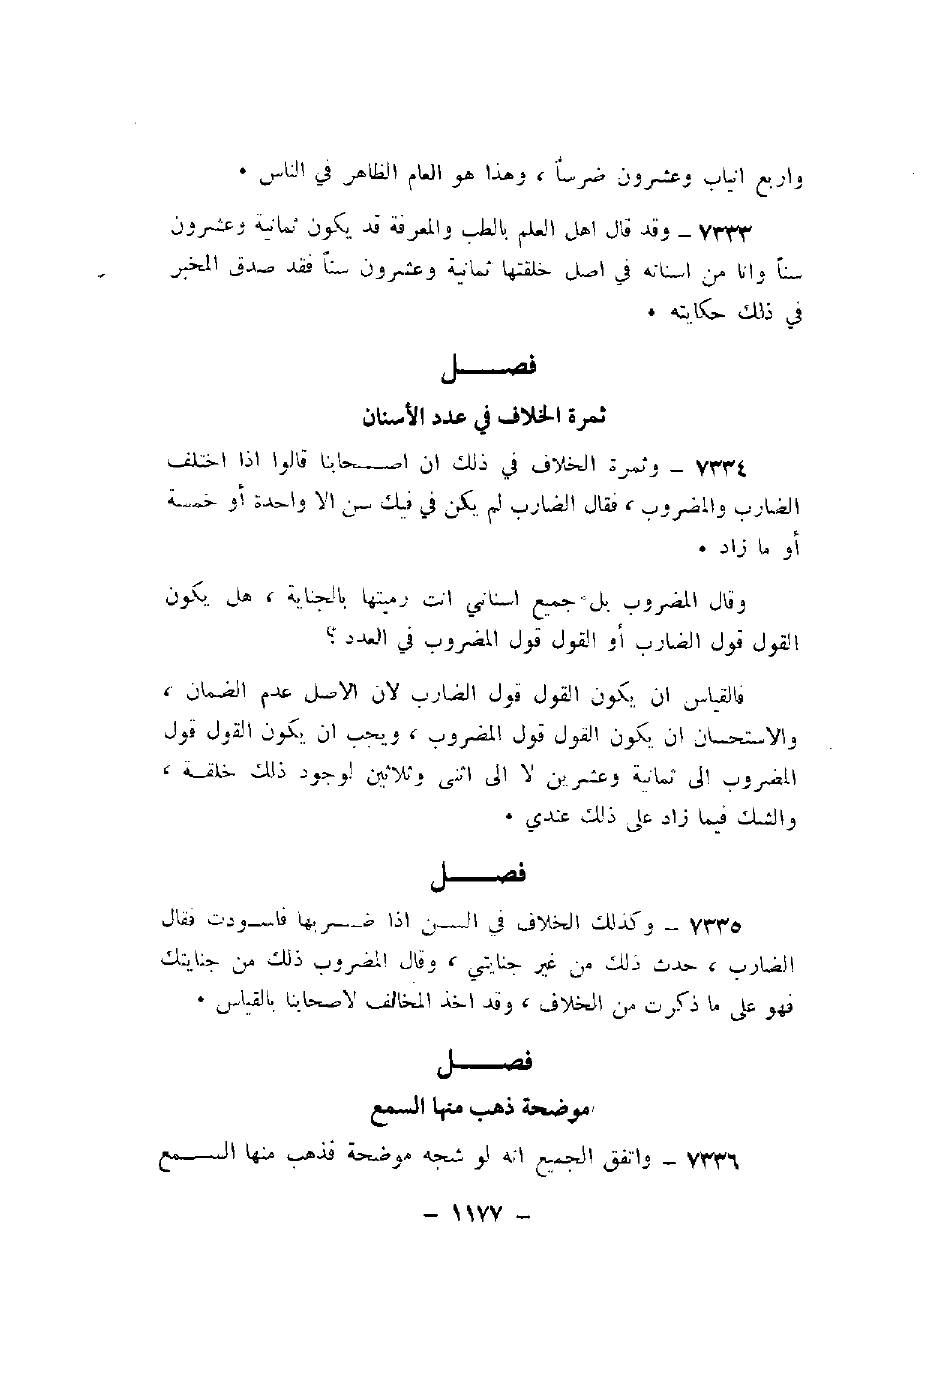 واربع انياب وعشرون ضرساً ، وهذا هو العام الظاهر في الناس .
٧٣٣٣ ــ وقد قال اهل العلم بالطب والمعرفة قد يكون ثمانية وعشرون
سناً وانا من اسنانه في اصل خلقتها ثمانية وعشرون سناً فقد صدق المخبر
في ذلك حكايته .
فصــــل
ثمرة الخلاف في عدد الأسنان
٧٣٣٤ ــ وثمرة الخلاف في ذلك ان اصــحابنا قالوا اذا اختلف
الضارب والمضروب ، فقال الضارب لم يكن في فيك سن الا واحدة أو خمسة
أو ما زاد .
وقال المضروب بل جميع اسناني انت رميتها بالجناية ، هل يكون
القول قول الضارب أو القول قول المضروب في العدد ؟
فالقياس ان يكون القول قول الضارب لان الاصل عدم الضمان ،
والاستحسان ان يكون القول قول المضروب ، ويجب ان يكون القول قول
المضروب الى ثمانية وعشرين لا الى اثنى وثلاثين لوجود ذلك خلقة ،
والشك فيما زاد على ذلك عندي .
فصــــل
٧٣٣٥ ــ وكذلك الخلاف في الســن اذا ضــربها فاسودت فقال
الضارب ، حدث ذلك من غير جنايتي ، وقال المضروب ذلك من جنايتك
فهو على ما ذكرت من الخلاف ، وقد اخذ المخالف لاصحابنا بالقياس .
فصــــل
موضحة ذهب منها السمع
٧٣٣٦ ــ واتفق الجميع انه لو شجه موضحة فذهب منها الســمع
ــ ١١٧٧ ــ